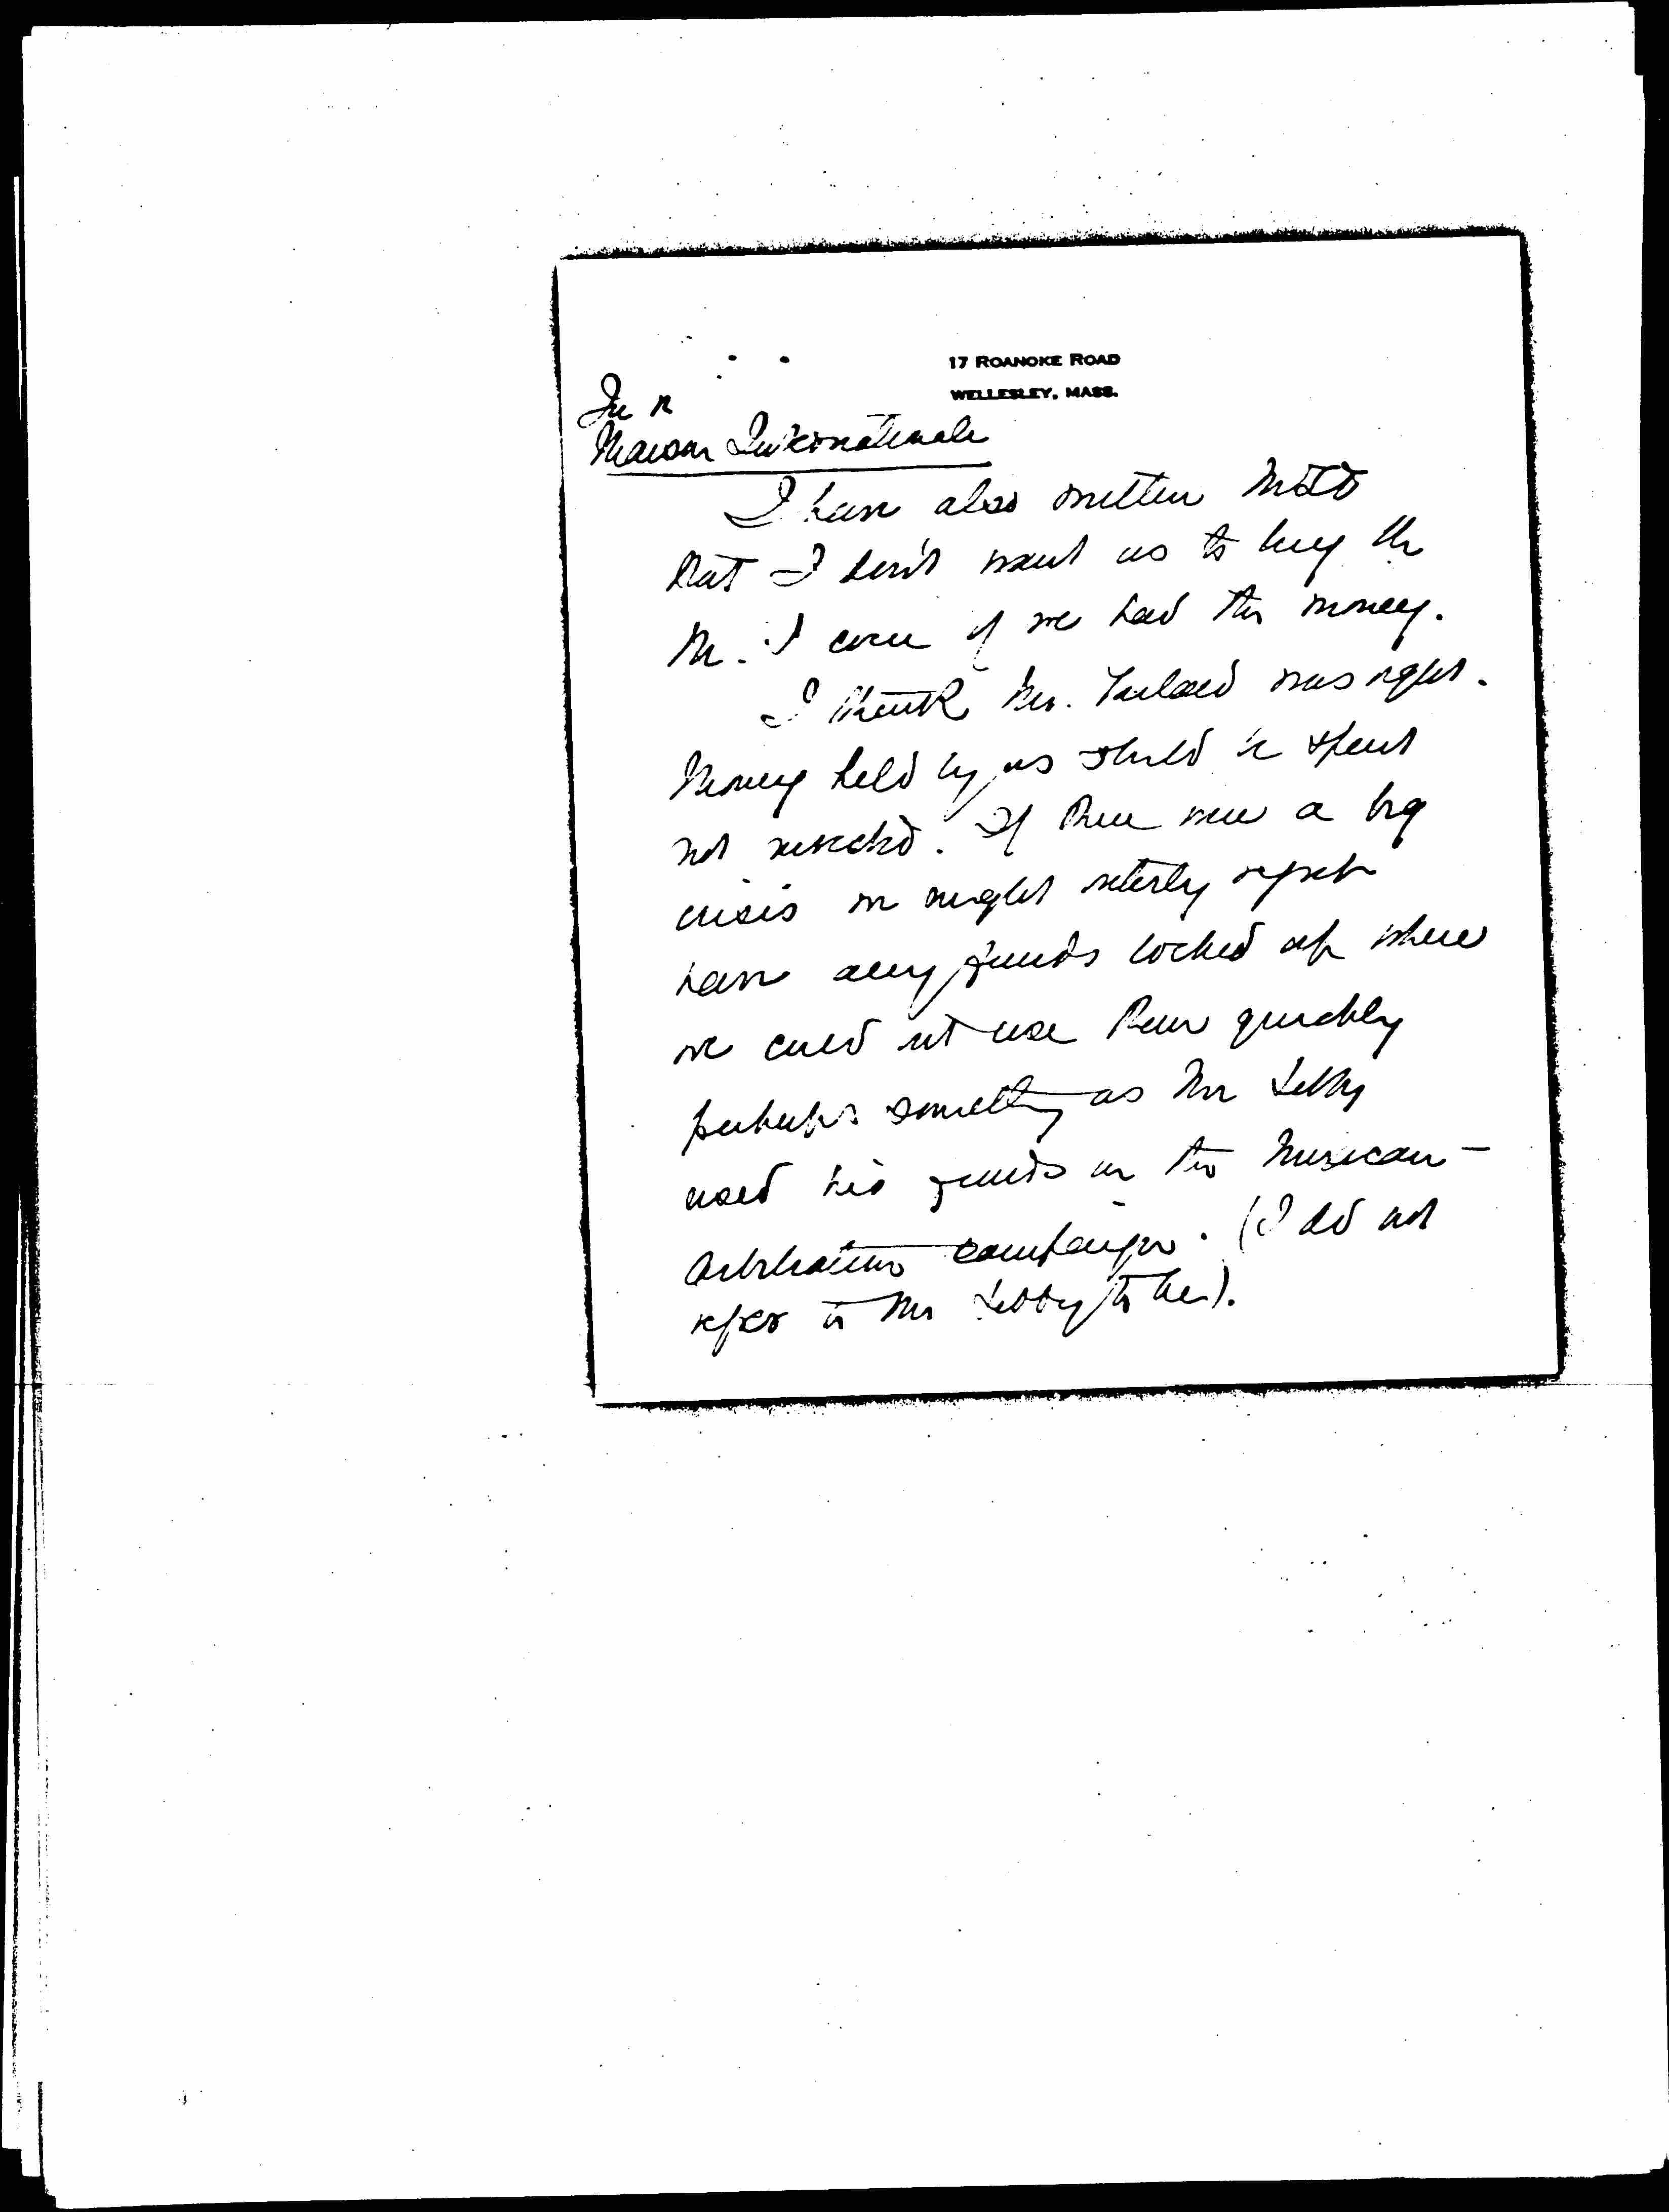 17 ROANOKE ROAD
WELLESLEY, MASS.
In re
Maison Internationale
I have also written
that I don't want us to buy the
M. I even if we had the money.
I think Mr. was right.
Money held by us should be spent
not invested. If there were a big
crisis we might utterly regret
have any funds locked up where
we could not use them quickly
perhaps something as Mr Libby
used his funds in the Mexican
Arbitration campaign. (I do not
refer to Mr Libby to her).